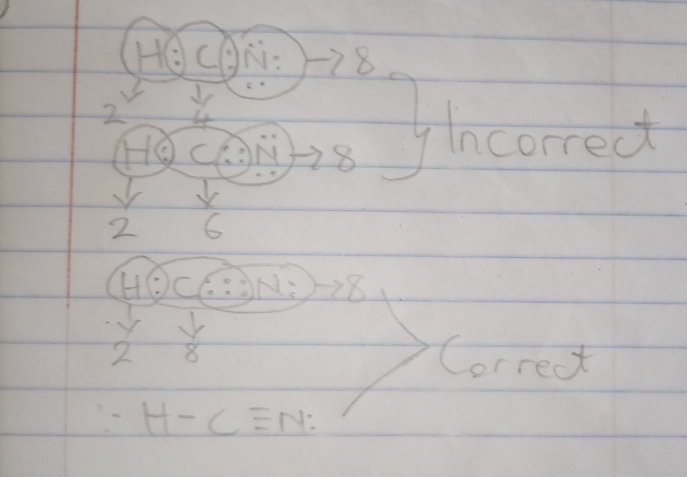 H : C : N̈ : → 8
2 4
Incorrect
H : C :: N̈ → 8
2 6
H : C ⋮⋮ N : → 8
2 8
Correct
∴ H - C ≡ N: